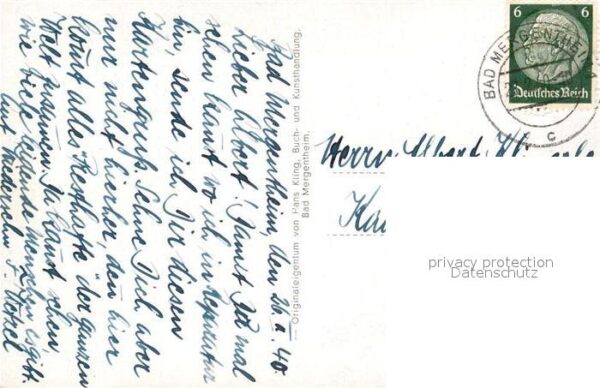 Bad Mergentheim, den 26.11.40
Lieber Albert! Damit Du mal
schen kannst wo ich in Reparatur
bin, sende ich Dir diesen
Kartengruß. Sehne Dich aber
nur nicht hierher, denn hier
kommt alles Resthafte der ganzen
Welt zusammen. Du kannst sehen
wie viele Menschen es gibt.
Auf Wiedersehn!
— Originaleigentum von Hans Kling, Buch- und Kunsthandlung,
Bad Mergentheim.
6 6
Deutsches Reich
BAD MERGENTHEIM
c
Herrn Albert
Ka
privacy protection
Datenschutz